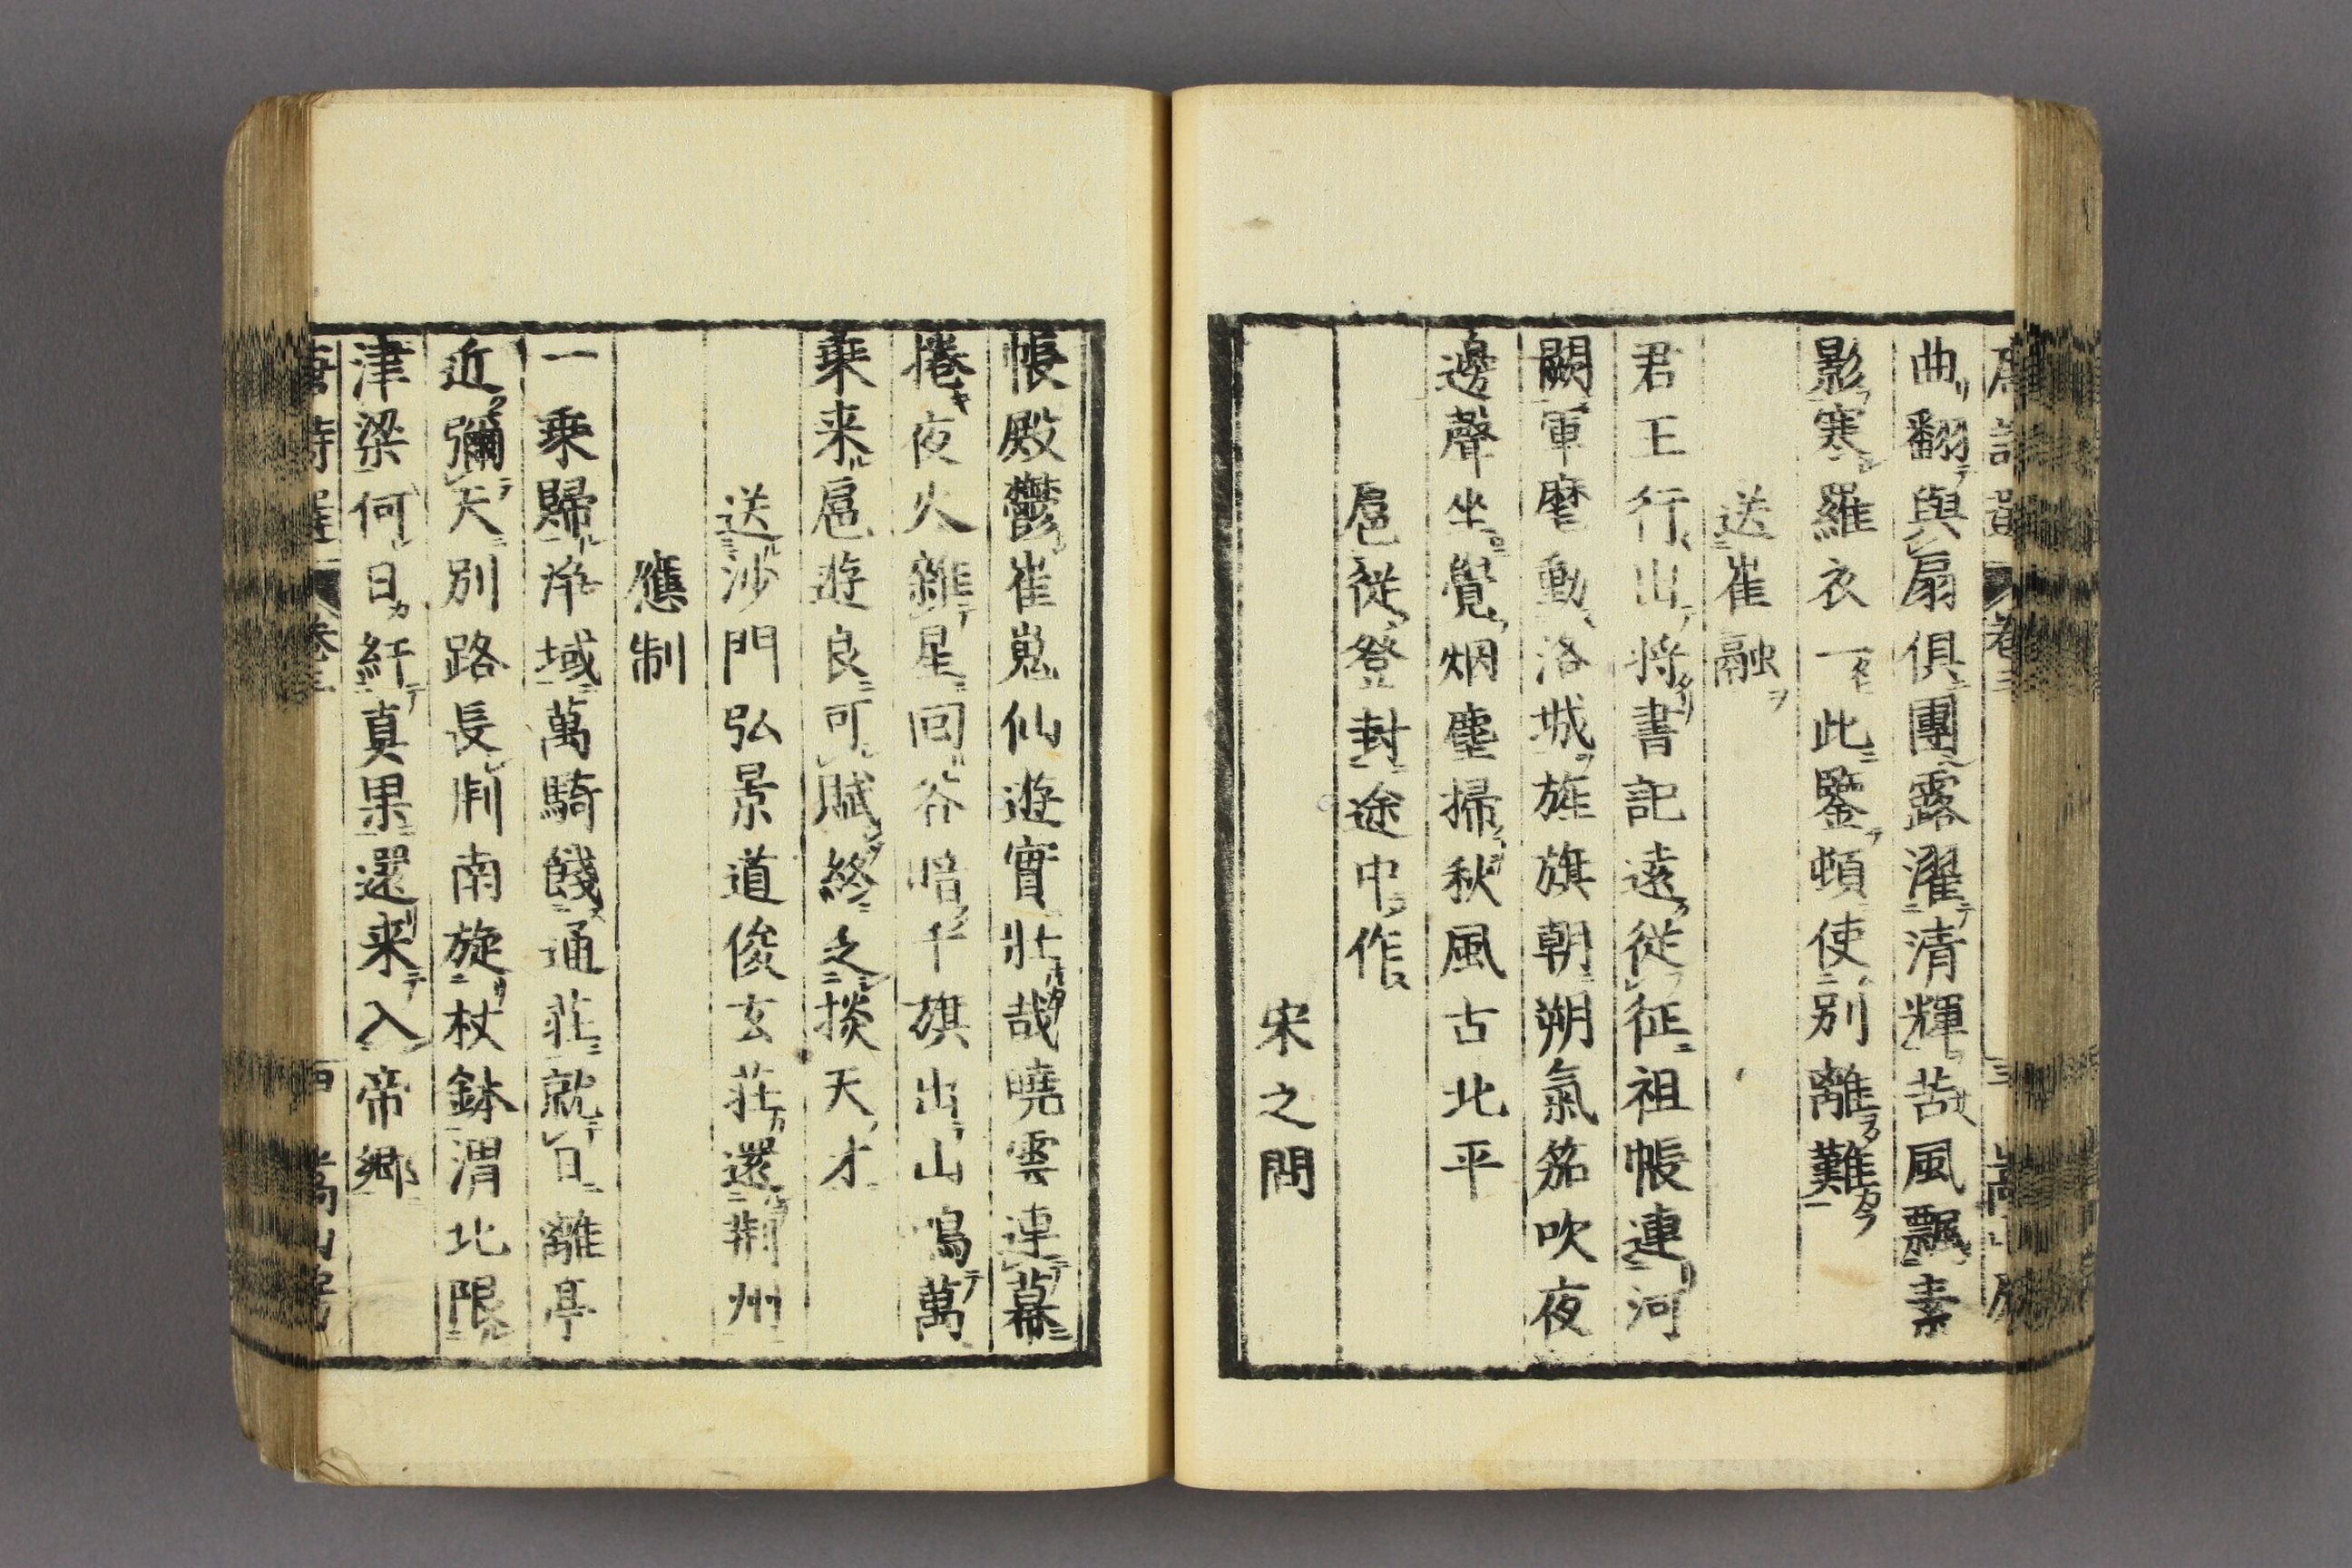 曲翻與扇俱團露濯清輝苦風飄素
影寒羅衣一此鑒頓使別離難
送崔融
君王行出將書記遠從征祖帳連河
闕軍麾動洛城旌旗朝朔氣笳吹夜
邊聲坐覺烟塵掃秋風古北平
扈從登封途中作
宋之問
帳殿鬱崔嵬仙遊實壯哉曉雲連幕
捲夜火雜星回谷暗千旗出山鳴萬
乗来扈遊良可賦終乏掞天才
送沙門弘景道俊玄莊還荆州
應制
一乗歸淨域萬騎餞通莊就日離亭
近彌天別路長荆南旋杖鉢渭北限
津梁何日紆真果還来入帝鄉
卷三